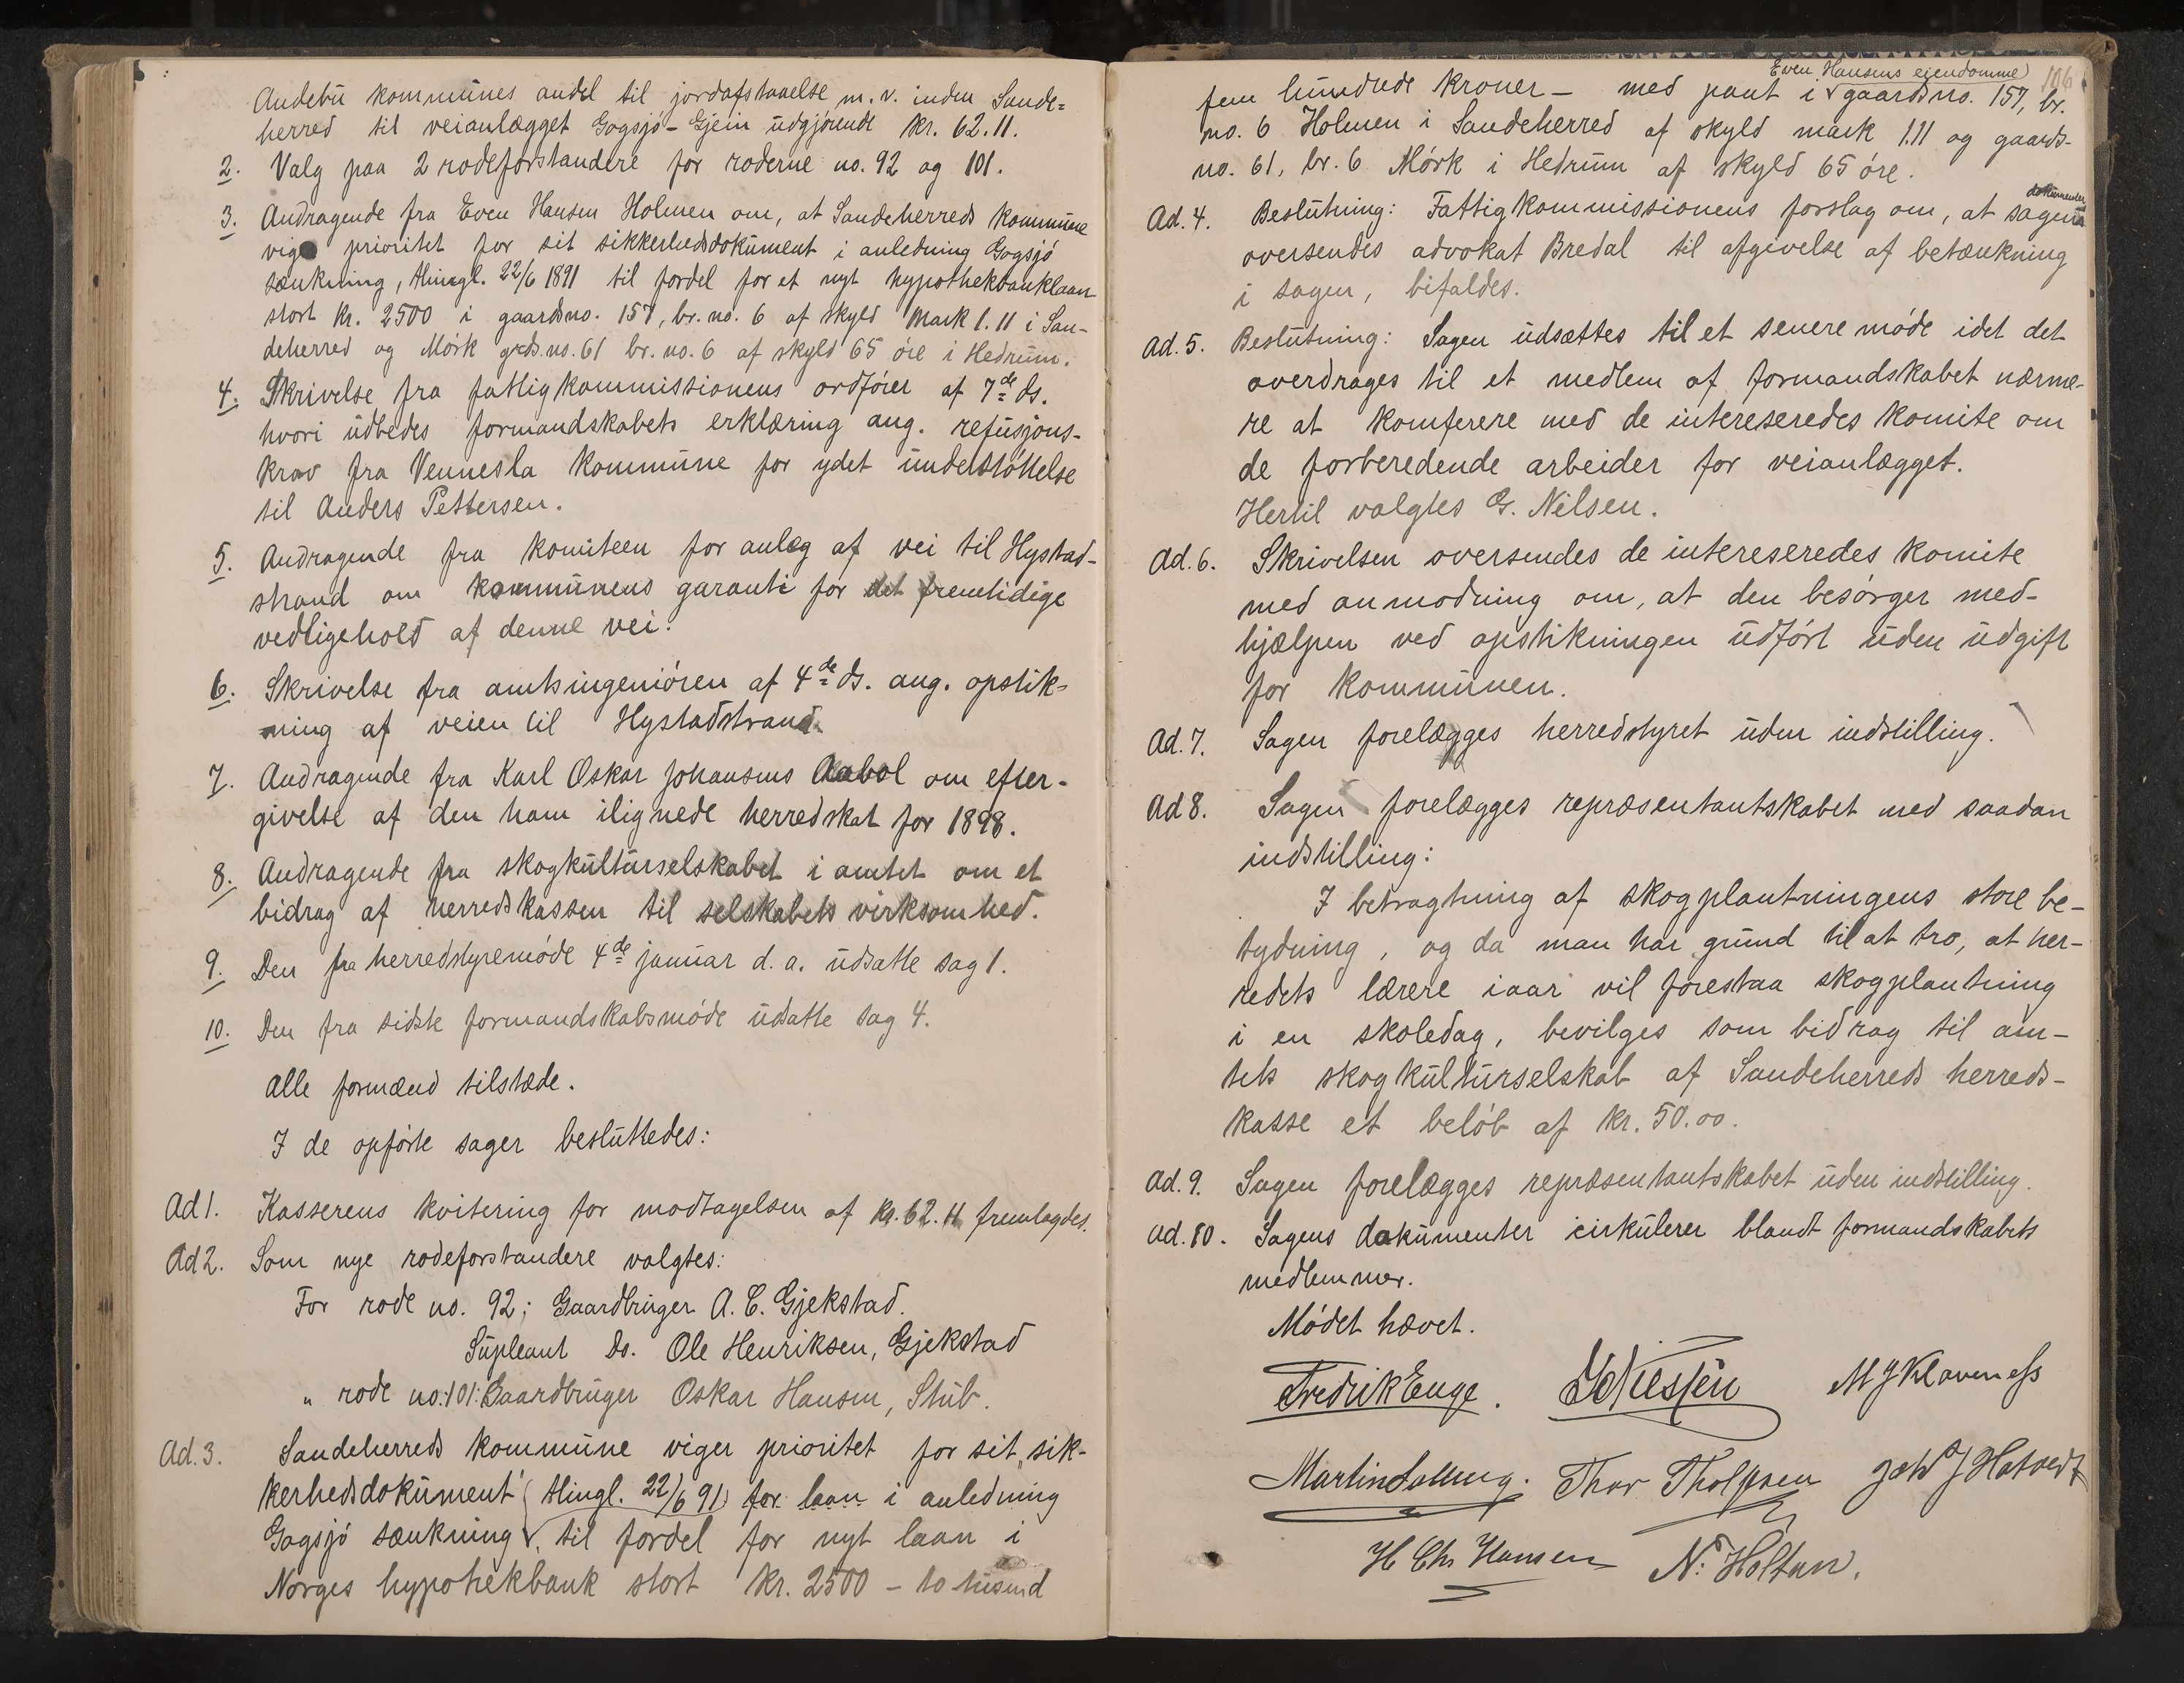 Andebu kommunes andel til jordafstaaelse m. v. inden Sande=
herred til veianlægget Gogsjø - Gjein udgjørende kr. 62.11.
2. Valg paa 2 rodeforstandere for roderne no. 92 og 101.
3. Andragende fra Even Hansen Holmen om, at Sandeherreds kommune
vige prioritet for sit sikkerhedsdokument i anledning Gogsjø
sænkning, thingl. 22/6 1891 til fordel for et nyt hypothekbanklaan
stort kr. 2500 i gaardsno. 157, br. no. 6 af skyld Mark 1.11 i San-
deherred og Mørk grds. no. 61 br. no. 6 af skyld 65 øre i Hedrum.
4. Skrivelse fra fattigkommissionens ordfører af 7de ds.
hvori udbedes formandskabets erklæring ang. refusjons-
krav fra Vennesla kommune for ydet understøttelse
til Anders Pettersen.
5. Andragende fra komiteen for anlæg af vei til Hystad-
strand om kommunens garanti for det fremtidige
vedligehold af denne vei.
6. Skrivelse fra amtsingeniøren af 4de ds. ang. opstik=
ning af veien til Hystadstrand.
7. Andragende fra Karl Oskar Johansens Aabol om efter-
givelse af den ham ilignede herredskat for 1898.
8. Andragende fra skogkulturselskabet i amtet om et
bidrag af herredskassen til selskabets virksomhed.
9. Den fra herredstyremøde 4de januar d. a. udsatte sag 1.
10. Den fra sidste formandskabsmøde udsatte sag 4.
Alle formænd tilstæde.
I de opførte sager besluttedes:
Ad 1. Kasserens kvitering for modtagelsen af kr. 62.11 fremlagdes.
Ad 2. Som nye rodeforstandere valgtes:
For rode no. 92; Gaardbruger A. C. Gjekstad.
Supleant Do. Ole Henriksen, Gjekstad
" rode no: 101: Gaardbruger Oskar Hansen, Stub.
Ad. 3. Sandeherreds kommune viger prioritet for sit „sik-
kerhedsdokument" (thingl. 22/6 91) for laan i anledning
Gogsjø sænkning √. til fordel for nyt laan i
Norges hypothekbank stort kr. 2500 - to tusind
106
Even Hansens eiendomme)
fem hundrede kroner - med pant i √ gaardsno. 157, br.
no. 6 Holmen i Sandeherred af skyld mark 1.11 og gaards-
no. 61, br. 6 Mørk i Hedrum af skyld 65 øre.
dokumenter
Ad. 4. Beslutning: Fattigkommissionens forslag om, at sagens
oversendes advokat Bredal til afgivelse af betænkning
i sagen, bifaldes.
Ad. 5. Beslutning: Sagen udsættes til et senere møde idet det
overdrages til et medlem af formandskabet nærme-
re at komferere med de intereseredes komite om
de forberedende arbeider for veianlægget.
Hertil valgtes G. Nilsen.
Ad. 6. Skrivelsen oversendes de intereseredes komite
med anmodning om, at den besørger med-
hjælpen ved opstikningen udført uden udgift
for kommunen.
Ad. 7. Sagen forelægges herredstyret uden indstilling.
Ad 8. Sagen forelægges repræsentantskabet med saadan
indstilling:
I betragtning af skogplantningens store be-
tydning, og da man har grund til at tro, at her-
redets lærere iaar vil forestaa skogplantning
i en skoledag, bevilges som bidrag til am-
tets skogkulturselskab af Sandeherreds herreds-
kasse et beløb af kr. 50.00.
Ad. 9. Sagen forelægges repræsentantskabet uden indstilling.
Ad. 10. Sagens dokumenter cirkulerer blandt formandskabets
medlemmer.
Mødet hævet.
Fredrik Enge. M J Klaveness
Martin Solberg. Thor Tholfsen J Hotvedt
H Chr Hansen N. Holtan.